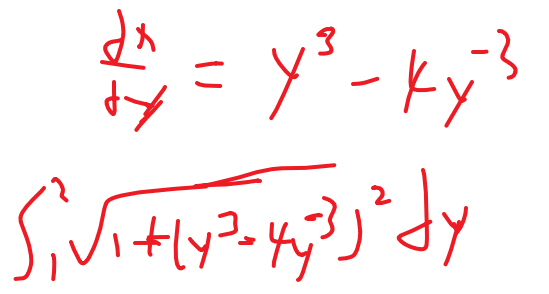 dx/dy = y³ - 4y⁻³
∫₁² √(1 + (y³ - 4y⁻³)²) dy